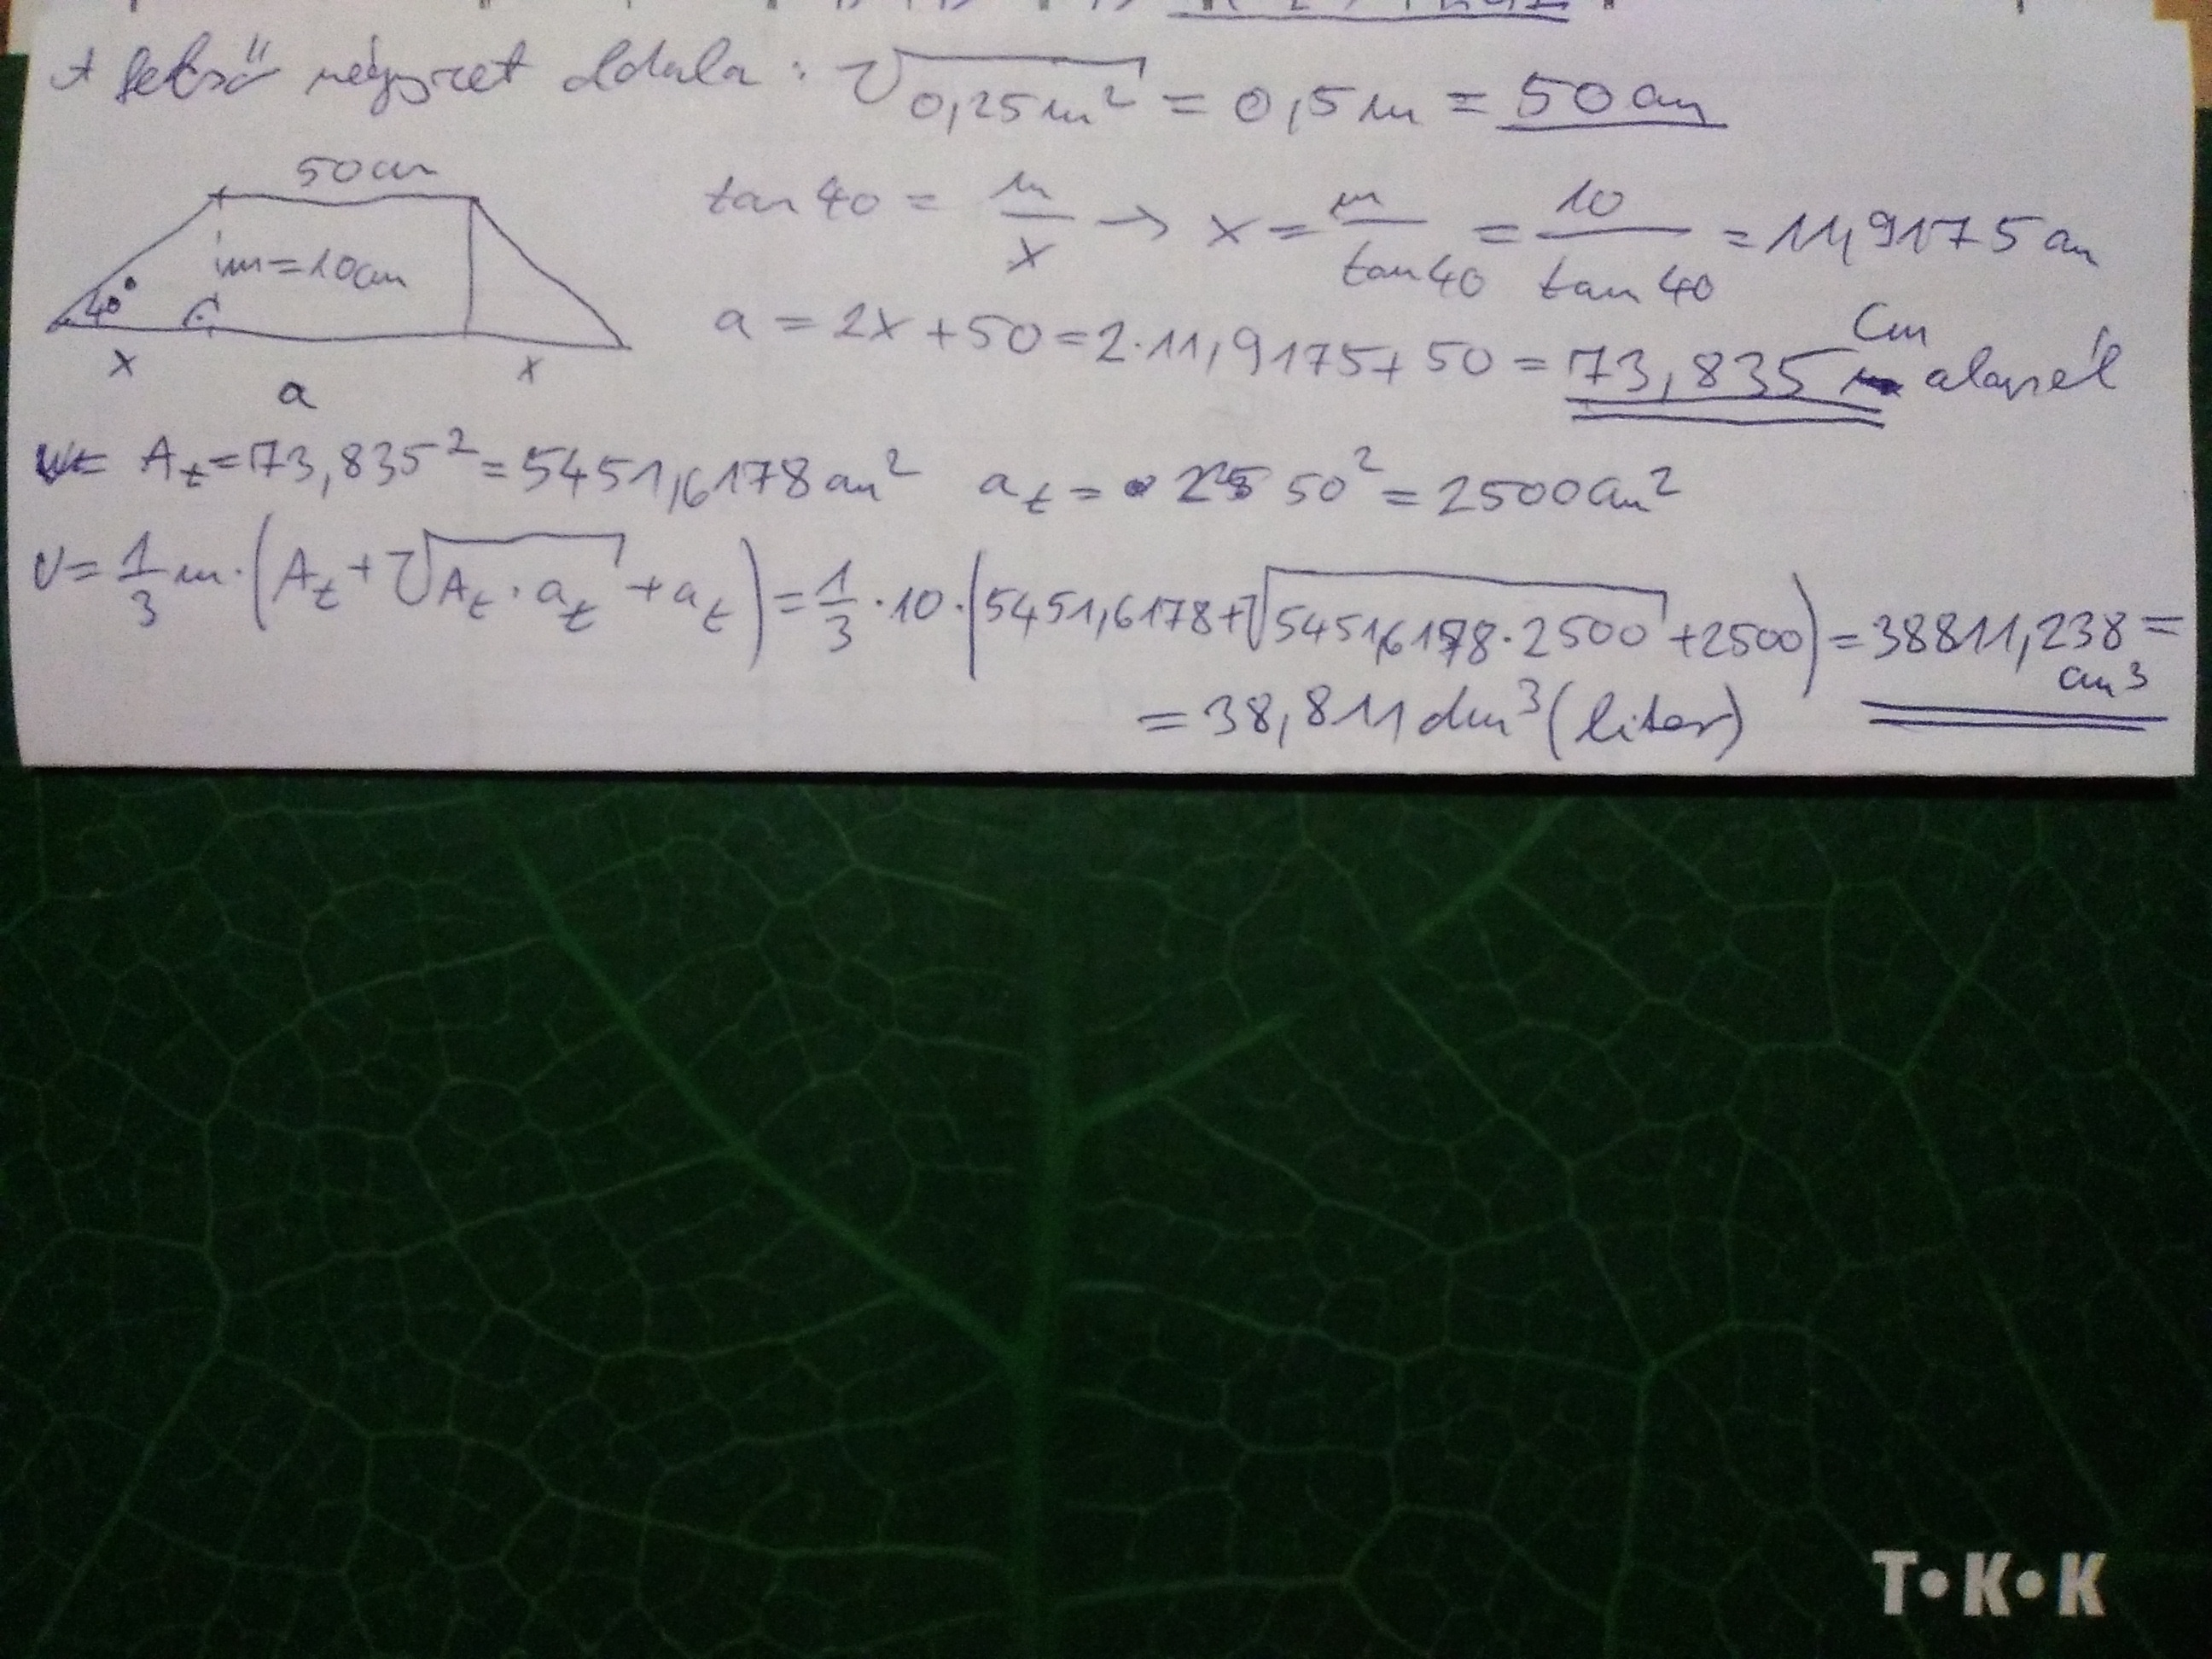 A felső négyzet oldala : √0,25m² = 0,5m = 50cm
50cm
m=10cm
40°
x
x
a
tan 40 = m/x → x = m/tan40 = 10/tan40 = 11,9175cm
a = 2x+50 = 2·11,9175+50 = 73,835 cm alapél
At = 73,835² = 5451,6178cm² at = 50² = 2500cm²
V = 1/3 m·(At + √At·at + at) = 1/3·10·(5451,6178+√5451,6178·2500+2500) = 38811,238 = cm³
= 38,811 dm³ (liter)
T•K•K